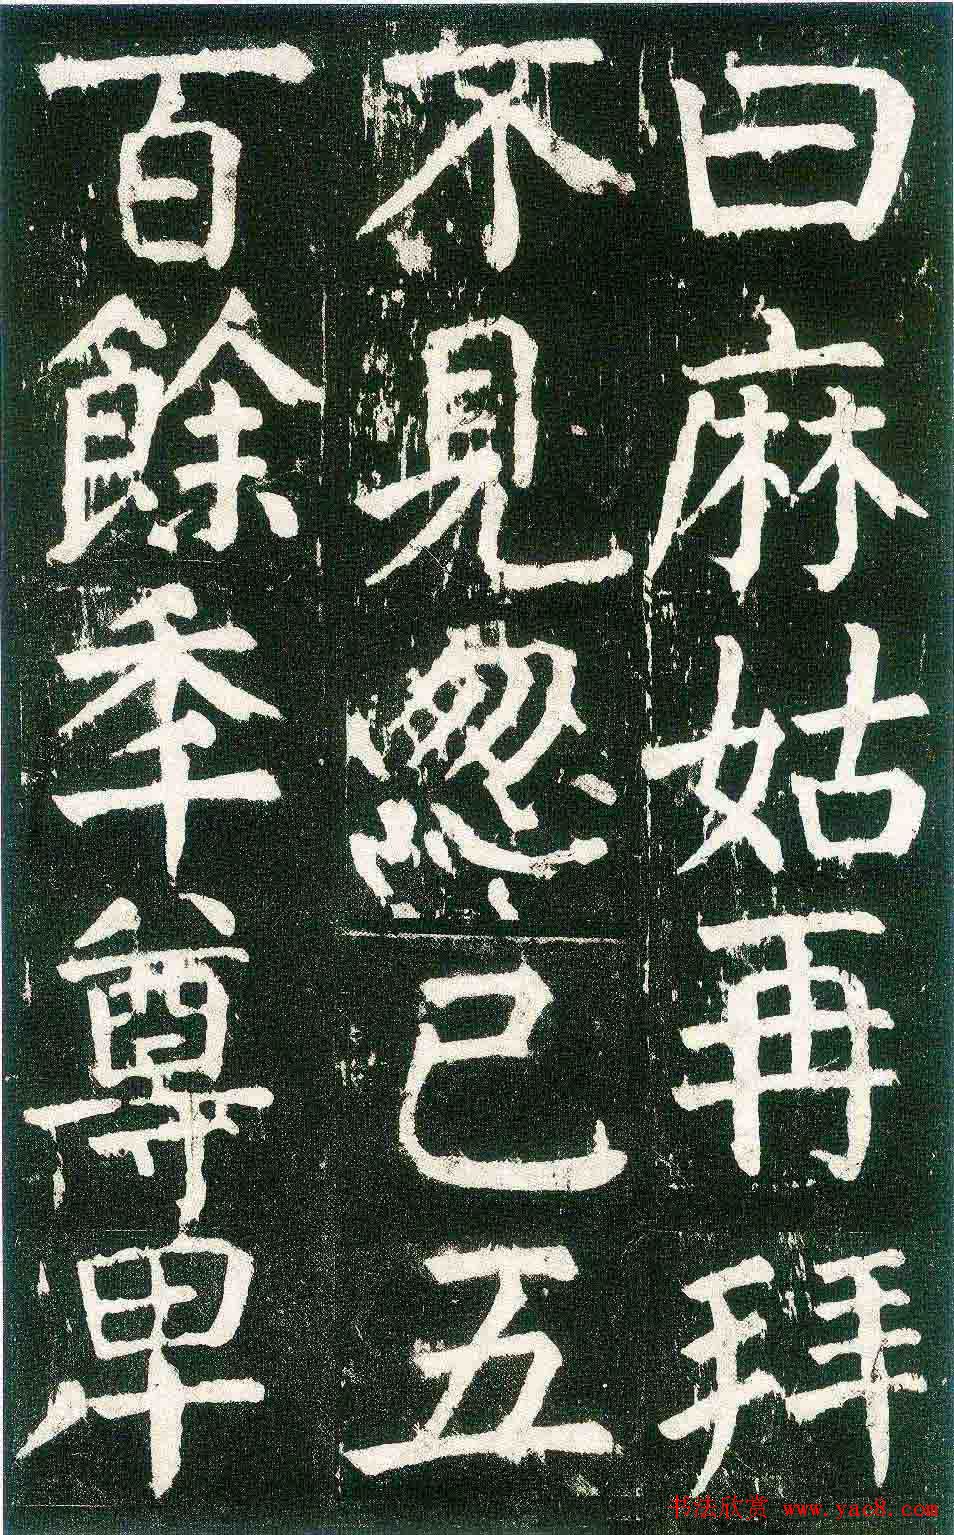 曰麻姑再拜
不見忽已五
百餘年尊卑
书法欣赏 www.yac8.com